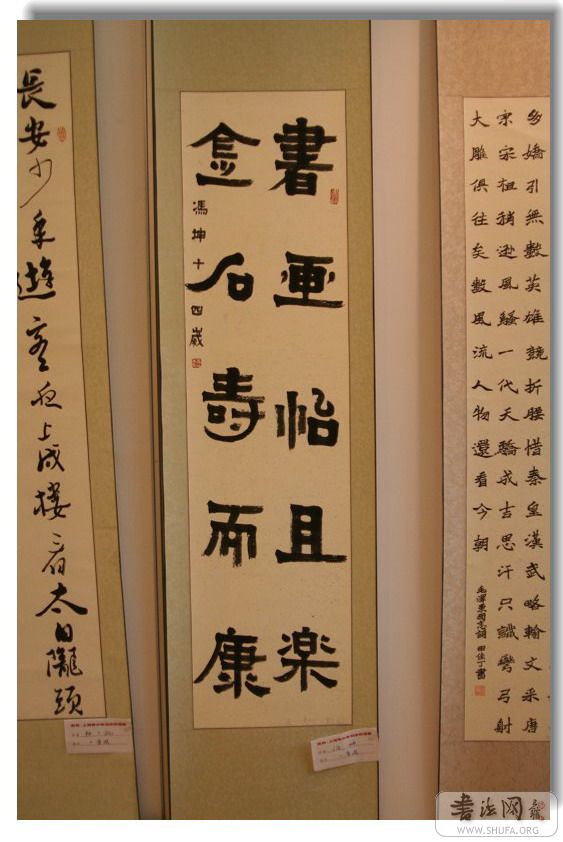 多嬌引無數英雄競折腰惜秦皇漢武略輸文采唐
宗宋祖稍遜風騷一代天驕成吉思汗只識彎弓射
大雕俱往矣數風流人物還看今朝
毛澤東同志詞 田佳丁書
書画怡且楽
金石壽而康
馮坤十四歲
長安少年遊客夜上戍樓看太白隴頭
书法网
WWW.SHUFA.ORG